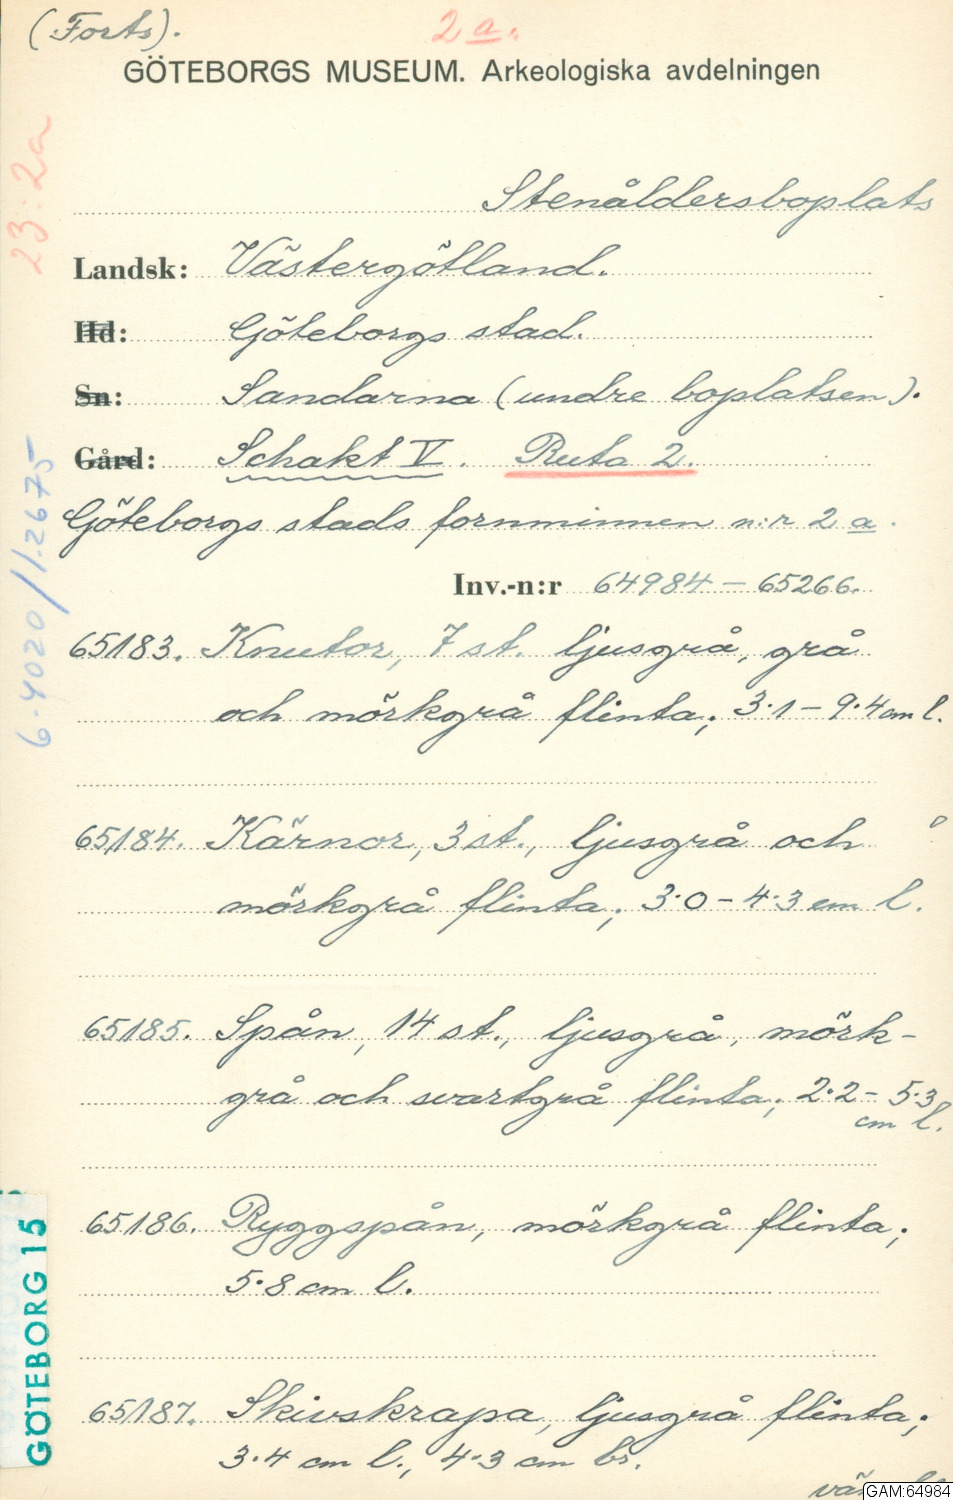 (Forts). 2 a.
GÖTEBORGS MUSEUM. Arkeologiska avdelningen
23:2a
Stenåldersboplats
Landsk: Västergötland.
Hd: Göteborgs stad.
Sn: Sandarna (undre boplatsen).
Gård: Schakt V. Ruta 2.
Göteborgs stads fornminnen n:r 2 a.
Inv.-n:r 64984 – 65266.
6.4020/1.2675
65183. Knutor, 7 st. ljusgrå, grå
och mörkgrå flinta; 3·1 – 9·4 cm l.
65184. Kärnor, 3 st., ljusgrå och
mörkgrå flinta; 3·0 – 4·3 cm l.
65185. Spån, 14 st., ljusgrå, mörk-
grå och svartgrå flinta; 2·2 – 5·3
cm l.
65186. Ryggspån, mörkgrå flinta;
5·8 cm l.
GÖTEBORG 15
65187. Skivskrapa, ljusgrå flinta;
3·4 cm l., 4·3 cm br.
GAM:64984